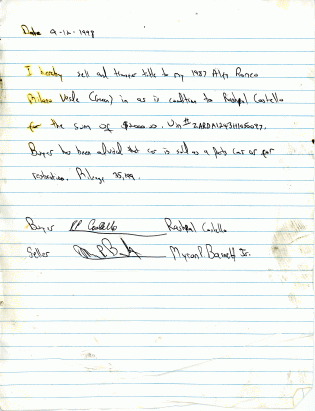 Date 9-12-1998
I hereby sell and transfer title to my 1987 Alfa Romeo
Milano Verde (Green) in as is condition to Rashpal Castello
for the sum of $2000.00. Vin#
Buyer has been advised that car is sold as a parts car or for
restoration. Mileage 75,199.
Buyer Castello Rashpal Castello
Seller Myron P Barnett Jr.